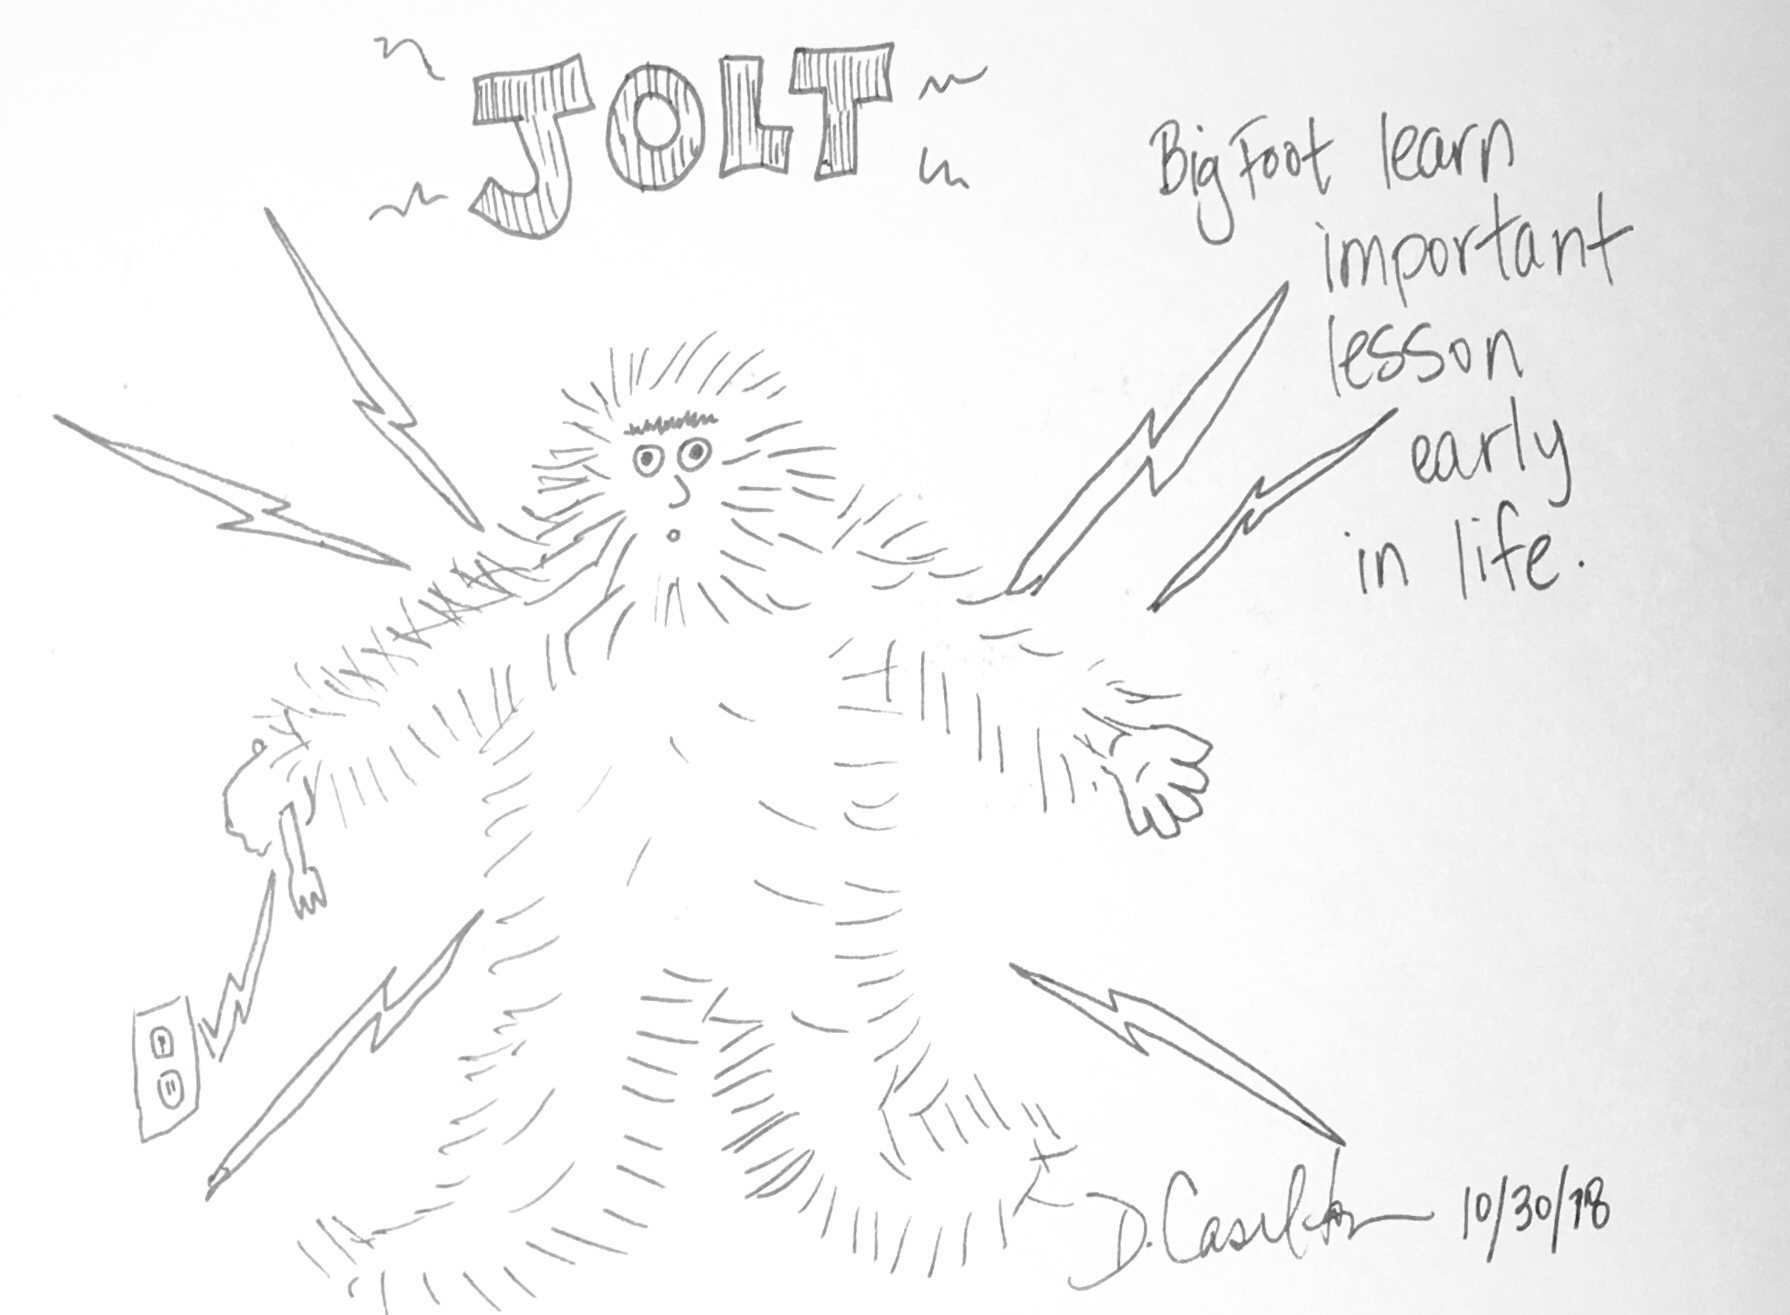 JOLT
BigFoot learn
important
lesson
early
in life.
D. Caselton 10/30/18